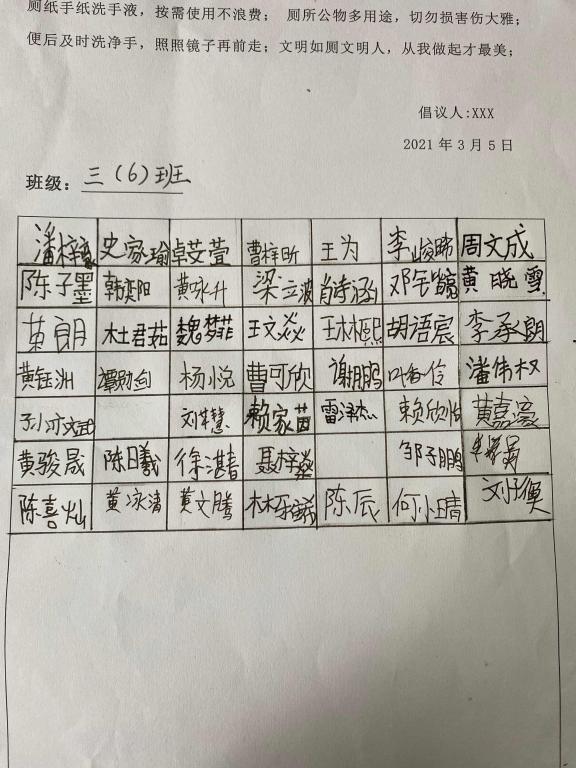 厕纸手纸洗手液，按需使用不浪费； 厕所公物多用途，切勿损害伤大雅；
便后及时洗净手，照照镜子再前走；文明如厕文明人，从我做起才最美；
倡议人:XXX
2021 年 3 月 5 日
班级：三（6）班
潘梓 史家瑜 卓芠萱 曹梓昕 王为 李峻 周文成
陈子墨 韩奕阳 黄咏升 梁立波 肖诗涵 邓 黄晓雪
黄朗 杜君茹 魏梦菲 王文焱 王林熙 胡语宸 李承朗
黄钰洲 谭勋剑 杨小悦 曹可欣 谢鹏 叶香伶 潘伟权
孙文武 刘芊慧 赖家茵 雷泽杰 赖欣怡 黄嘉濠
黄骏晟 陈日羲 徐湛春 聂梓燊 邹子鹏
陈喜灿 黄冰清 黄文腾 林 陈辰 何小晴 刘